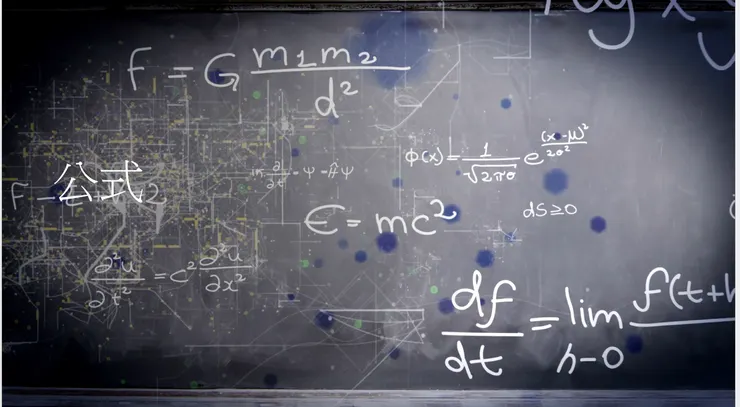 log x
F = G m1m2 / d²
Φ(x) = 1 / √2πσ e (x-μ)² / 2σ²
iħ ∂/∂t Ψ = ĤΨ
公式
E = mc²
dS ≥ 0
∂²u / ∂t² = c² ∂²u / ∂x²
df / dt = lim h→0 f(t+h